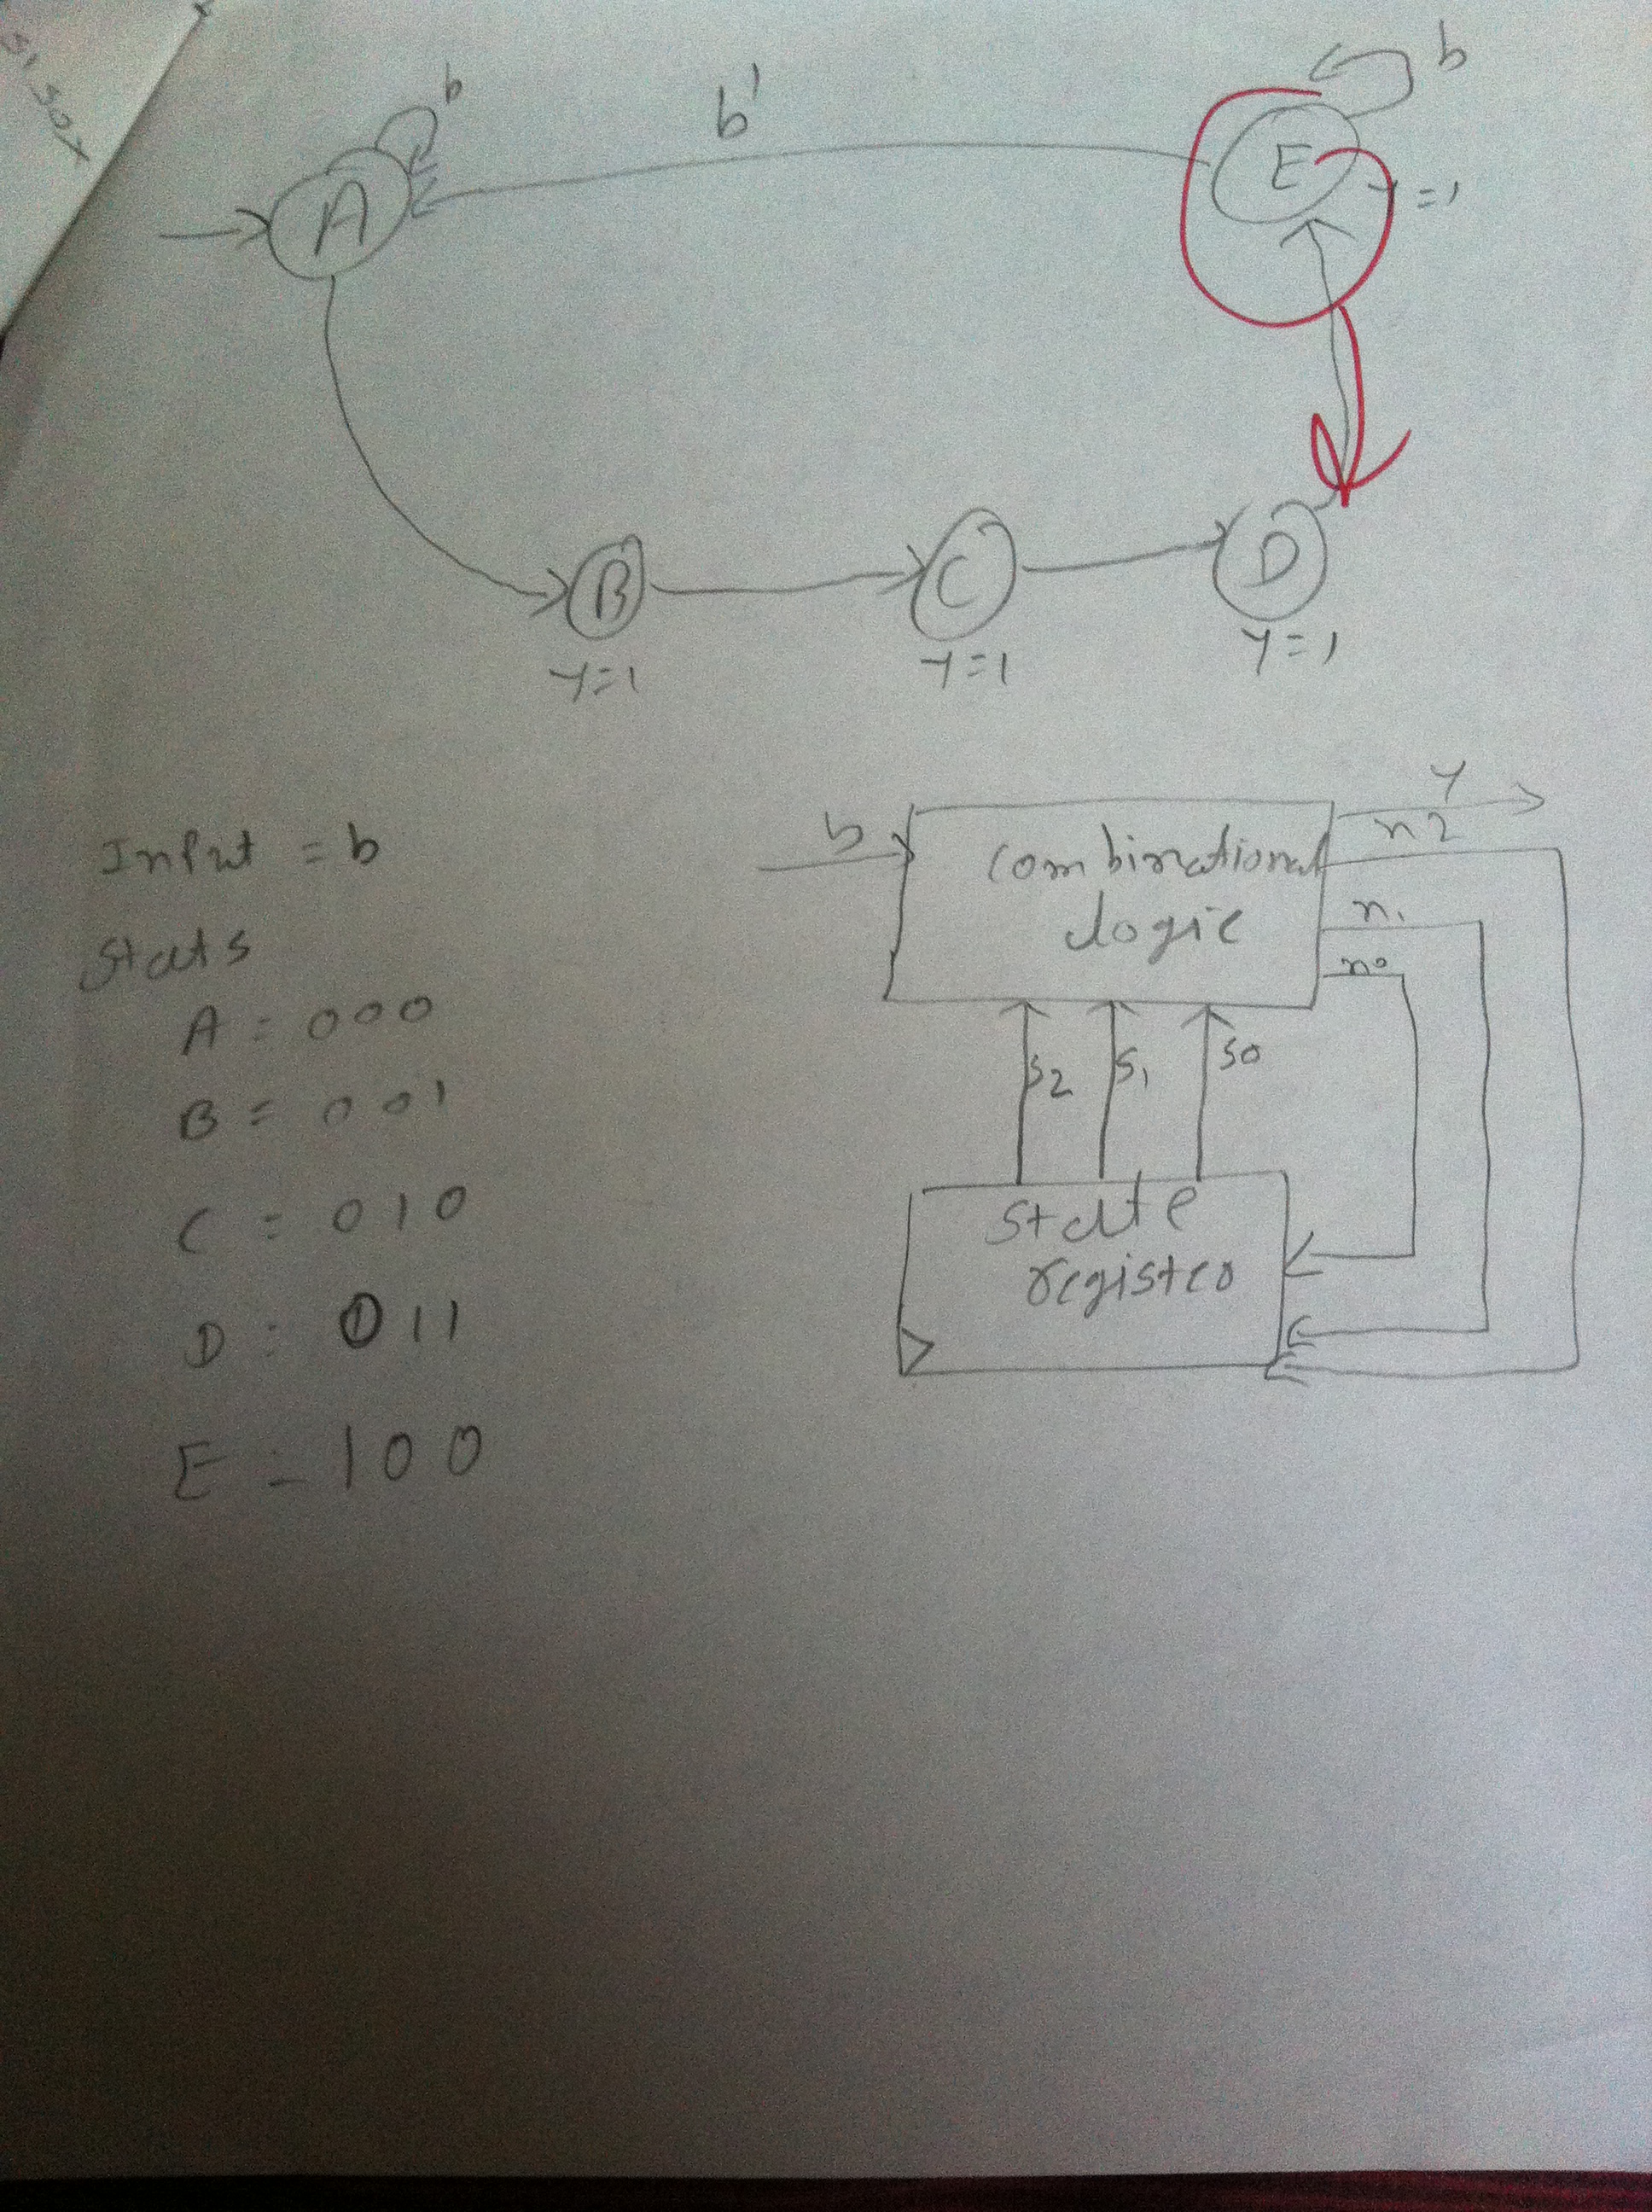 b
b'
b
A
E
Y=1
B
C
D
Y=1
Y=1
Y=1
Input = b
Stats
A = 000
B = 001
C = 010
D = 011
E = 100
b
Combinational
logic
Y
n2
n1
n0
S2
S1
S0
State
register